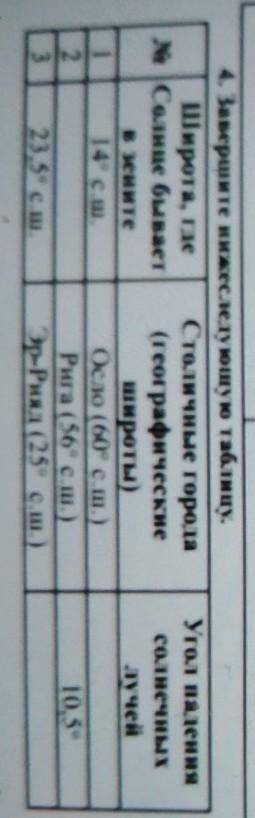 4. Завершите нижеследующую таблицу.
№ Широта, где Солнце бывает в зените Столичные города (географические широты) Угол падения солнечных лучей
1 14° с.ш. Осло (60° с.ш.)
2 Рига (56° с.ш.) 10,5°
3 23,5° с.ш. Эр-Рияд (25° с.ш.)